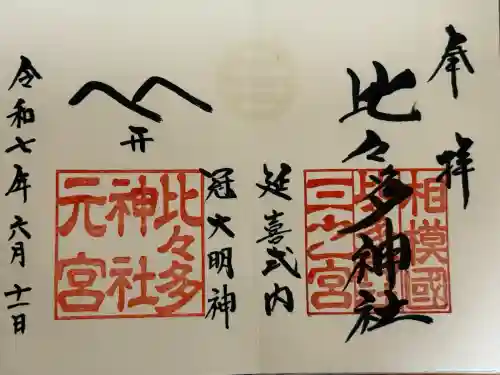 奉拝
相模國
比々多神社
三之宮
比々多神社
延喜式内
冠大明神
开
比々多
神社
元宮
令和七年六月十一日